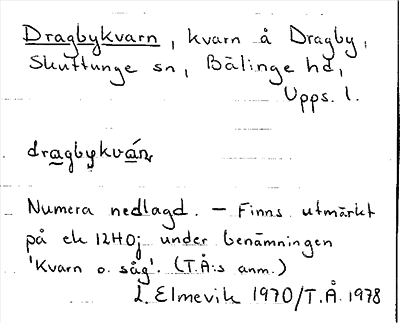 Dragbykvarn, kvarn å Dragby,
Skuttunge sn, Bälinge hd,
Upps. l.
dragbykvá̱rn
Numera nedlagd. – Finns utmärkt
på ek 12H0j under benämningen
'Kvarn o. såg'. (T.Å:s anm.)
L. Elmevik 1970/T.Å. 1978